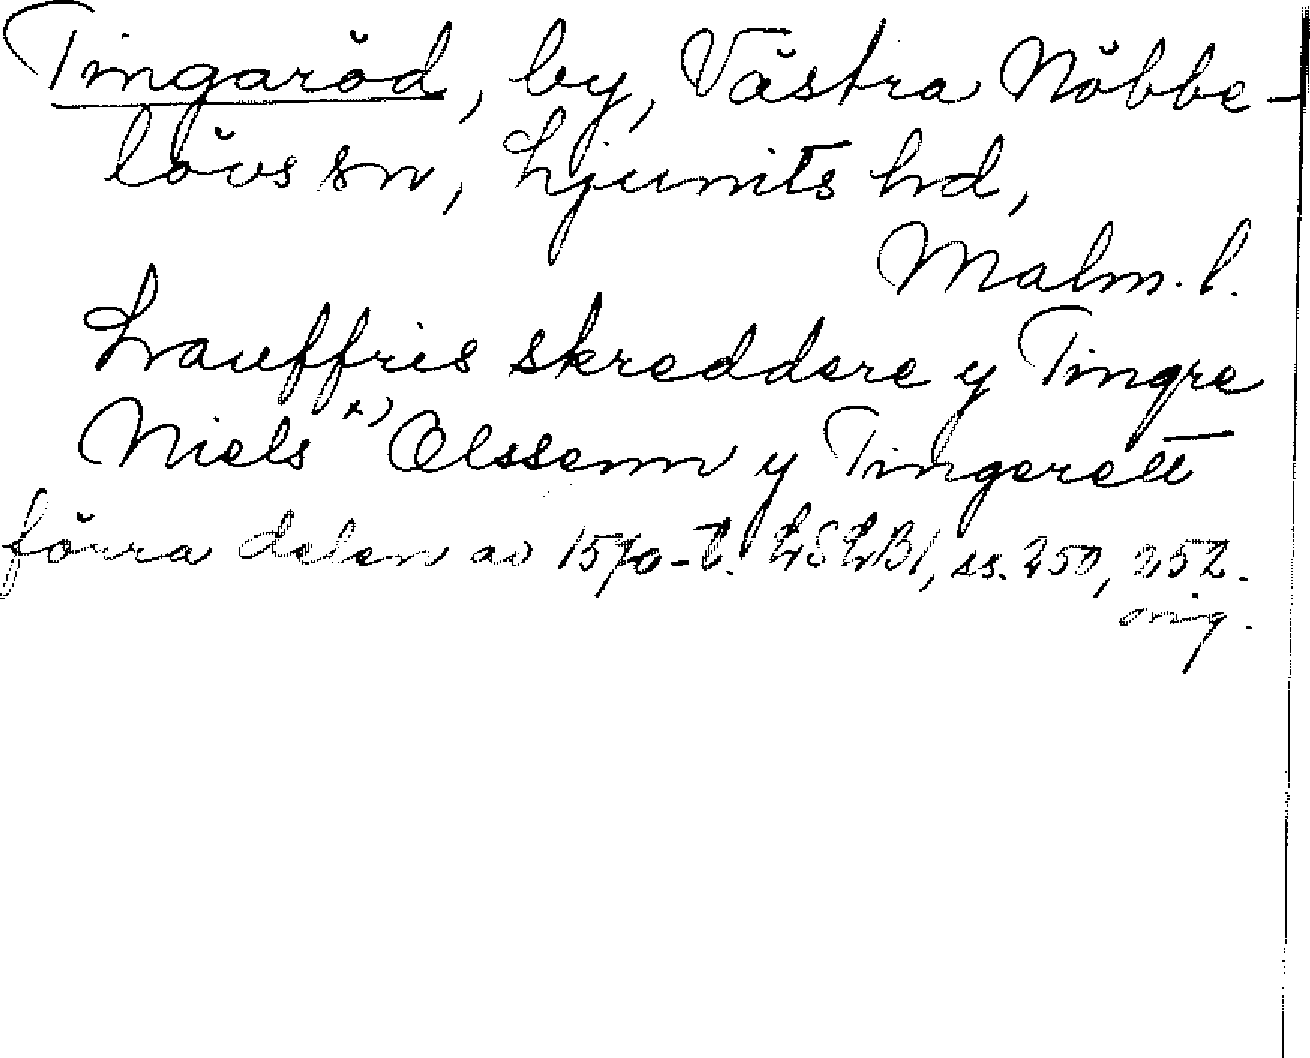 Tingaröd, by, Västra Nöbbe-
lövs sn, Ljunits hd,
Malm. l.
Lauffris skreddere y Tingre
Niels x) Olssenn y Tingerett
förra delen av 1570-t. LSLB1, ss. 250, 252.
orig.